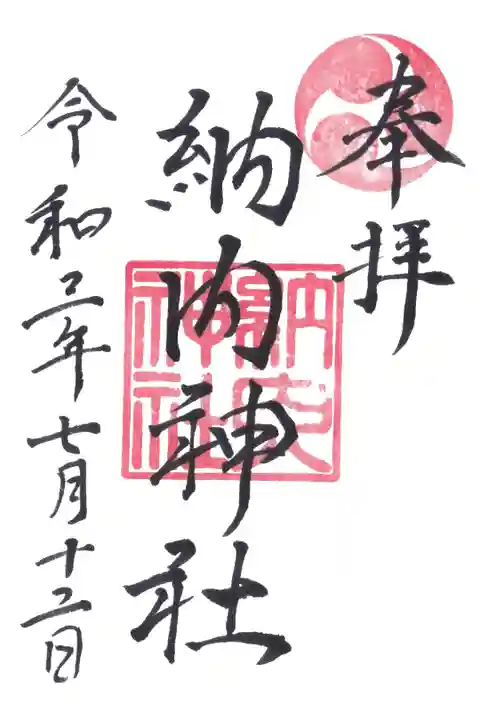 奉拝
納内神社
令和三年七月十二日
納内神社